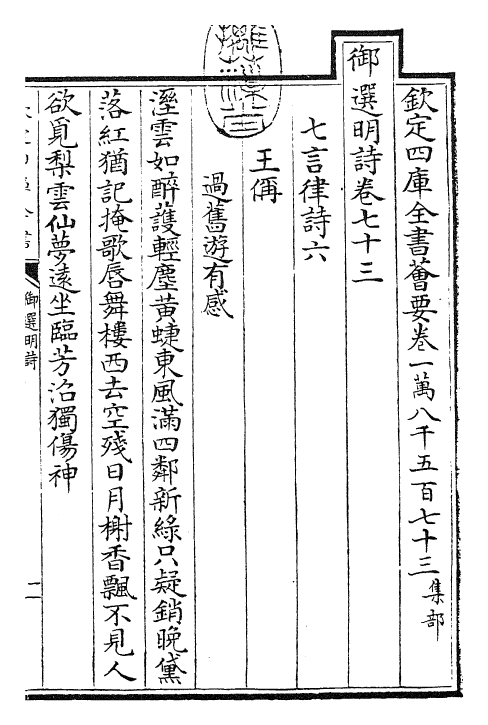 欽定四庫全書薈要卷一萬八千五百七十三集部
御選明詩卷七十三
七言律詩六
王偁
過舊遊有感
溼雲如醉護輕塵黃蜨東風滿四鄰新綠只疑銷晚黛
落紅猶記掩歌唇舞樓西去空殘日月榭香飄不見人
欲覓梨雲仙夢遠坐臨芳沼獨傷神
御選明詩